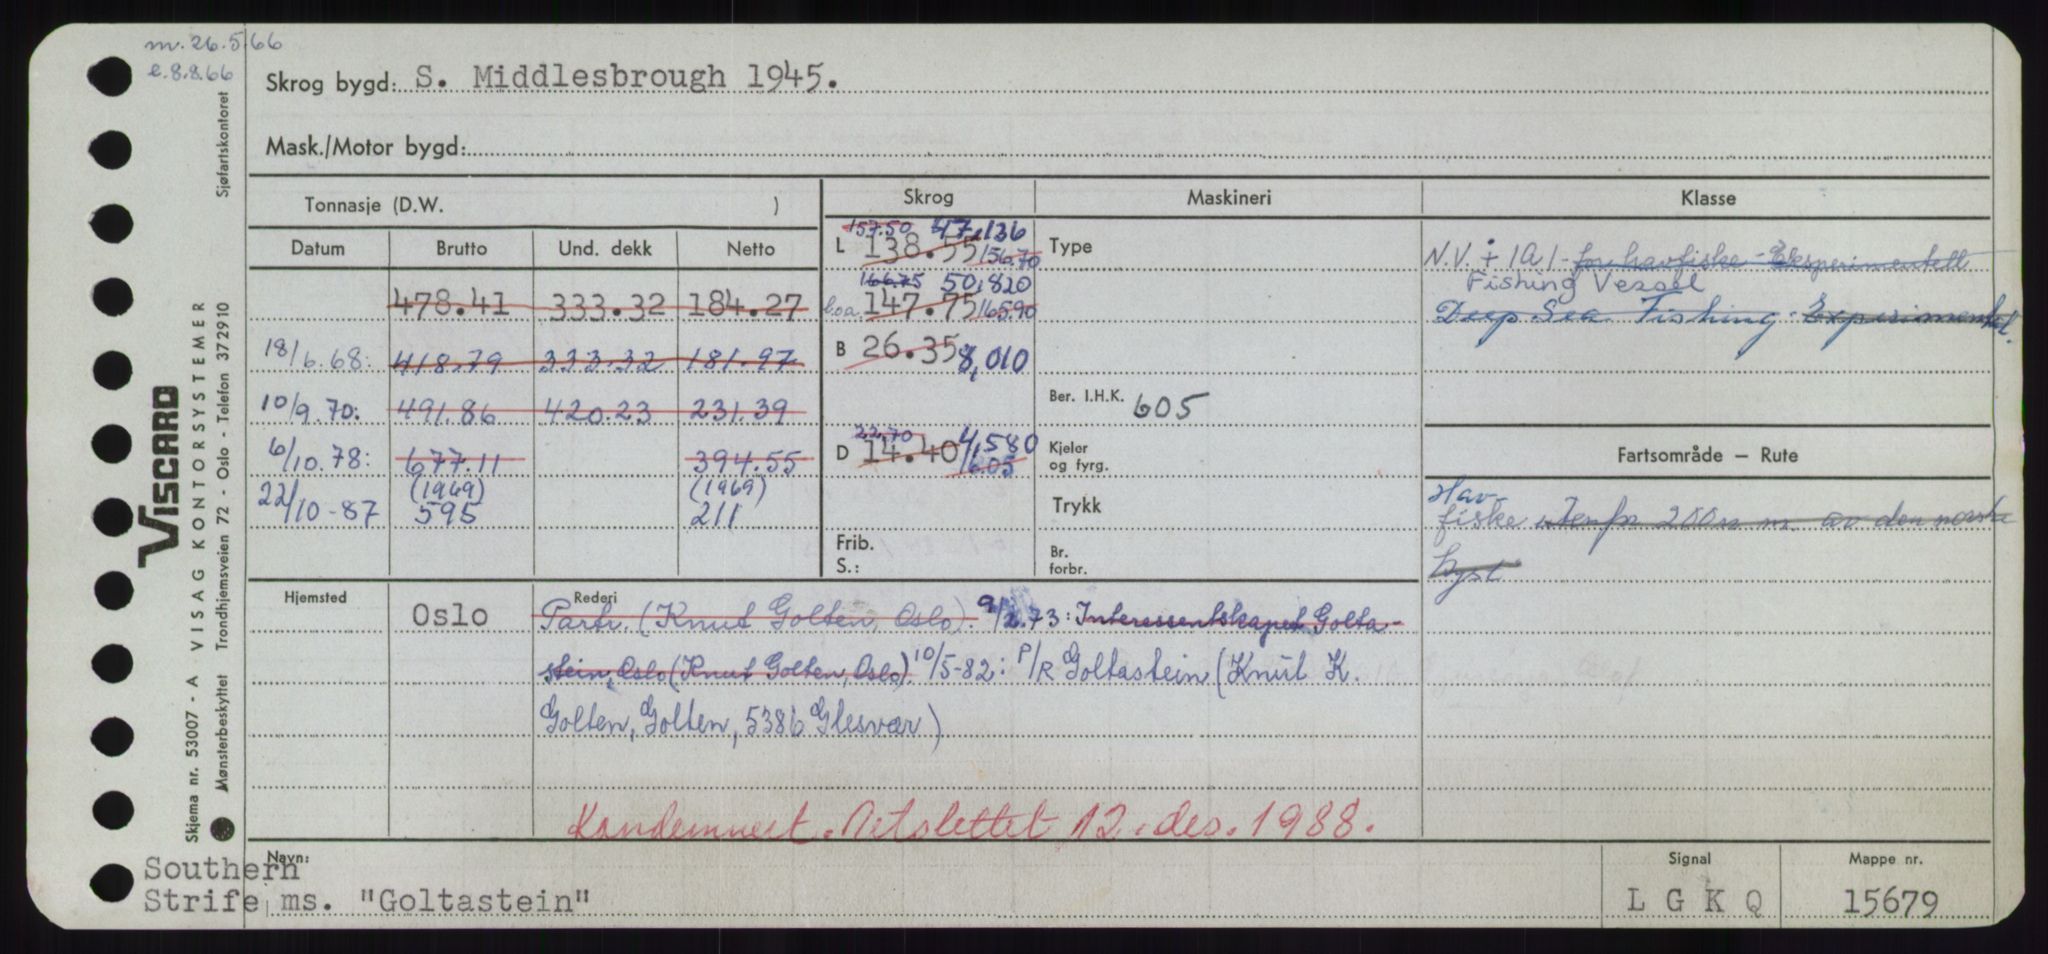 m. 26.5.66
e. 8.8.66
Skrog bygd: S. Middlesbrough 1945.
Mask./Motor bygd:
Tonnasje (D.W. )
Skrog
Maskineri
Klasse
Datum Brutto Und. dekk Netto
157.50 47,136
L 138.55 156.70
Type
N.V. + 1A1 - for havfiske - Eksperimentell
Fishing Vessel
166.75 50,820
478.41 333.32 184.27
l.o.a. 147.75 165.90
Deep Sea Fishing - Experimental.
18/6.68: 418.79 333.32 181.97
B 26.35 8,010
10/9.70: 491.86 420.23 231.39
Ber. I.H.K. 605
6/10.78: 677.11 394.55
22.70 4,580
D 14.40 16.05
Kjeler
og fyrg.
Fartsområde — Rute
22/10-87 (1969) (1969)
595 211
Trykk
Hav-
fiske utenfor 200 n m. av den norske
kyst
Frib.
S.:
Br.
forbr.
Hjemsted
Rederi
Oslo Partr. (Knut Golten, Oslo). 9/2.73: Interessentskapet Golta-
stein, Oslo (Knut Golten, Oslo) 10/5-82: P/R Goltastein (Knut K.
Golten, Golten, 5386 Glesvær)
Kondemnert. Netslettet 12. des. 1988.
Navn:
Southern
Strife ms. "Goltastein"
Signal
L G K Q
Mappe nr.
15679
VISCARD
Skjema nr. 53007 - A - VISAG KONTORSYSTEMER
Mønsterbeskyttet Trondhjemsveien 72 - Oslo - Telefon 372910
Sjøfartskontoret